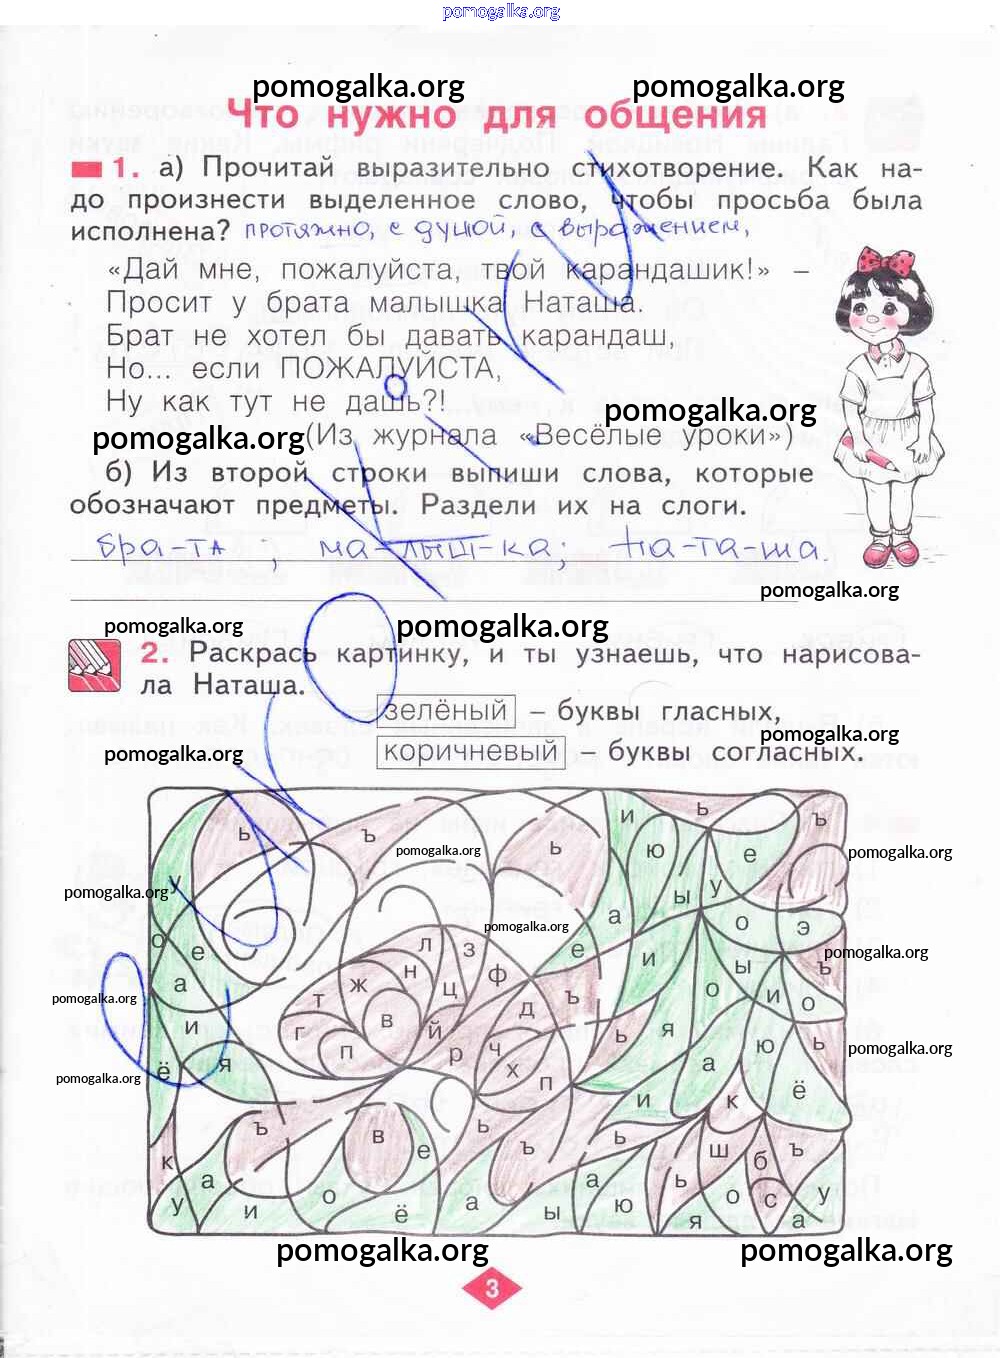 pomogalka.org
pomogalka.org pomogalka.org
Что нужно для общения
1. а) Прочитай выразительно стихотворение. Как на-
до произнести выделенное слово, чтобы просьба была
исполнена? протяжно, с душой, с выражением,
«Дай мне, пожалуйста, твой карандашик!» –
Просит у брата малышка Наташа.
Брат не хотел бы давать карандаш,
Но... если ПОЖАЛУЙСТА,
Ну как тут не дашь?!
pomogalka.org
pomogalka.org
(Из журнала «Весёлые уроки»)
б) Из второй строки выпиши слова, которые
обозначают предметы. Раздели их на слоги.
бра-та ; ма-лыш-ка; На-та-ша.
pomogalka.org
pomogalka.org pomogalka.org
2. Раскрась картинку, и ты узнаешь, что нарисова-
ла Наташа.
зелёный – буквы гласных,
pomogalka.org
коричневый – буквы согласных.
pomogalka.org
ь ъ ь и ь ъ
pomogalka.org ю е pomogalka.org
pomogalka.org у ы у
а о э
pomogalka.org
о е л з е и ы ъ pomogalka.org
а ж н ц ф о и о
pomogalka.org т ъ
и г в й д ь я ю ь pomogalka.org
ё я п р ч х п а ё
pomogalka.org
и к
ъ в ь ь
к е ъ ш б ъ
у а и о ё а ы а ю ь я о с а у
pomogalka.org pomogalka.org
3